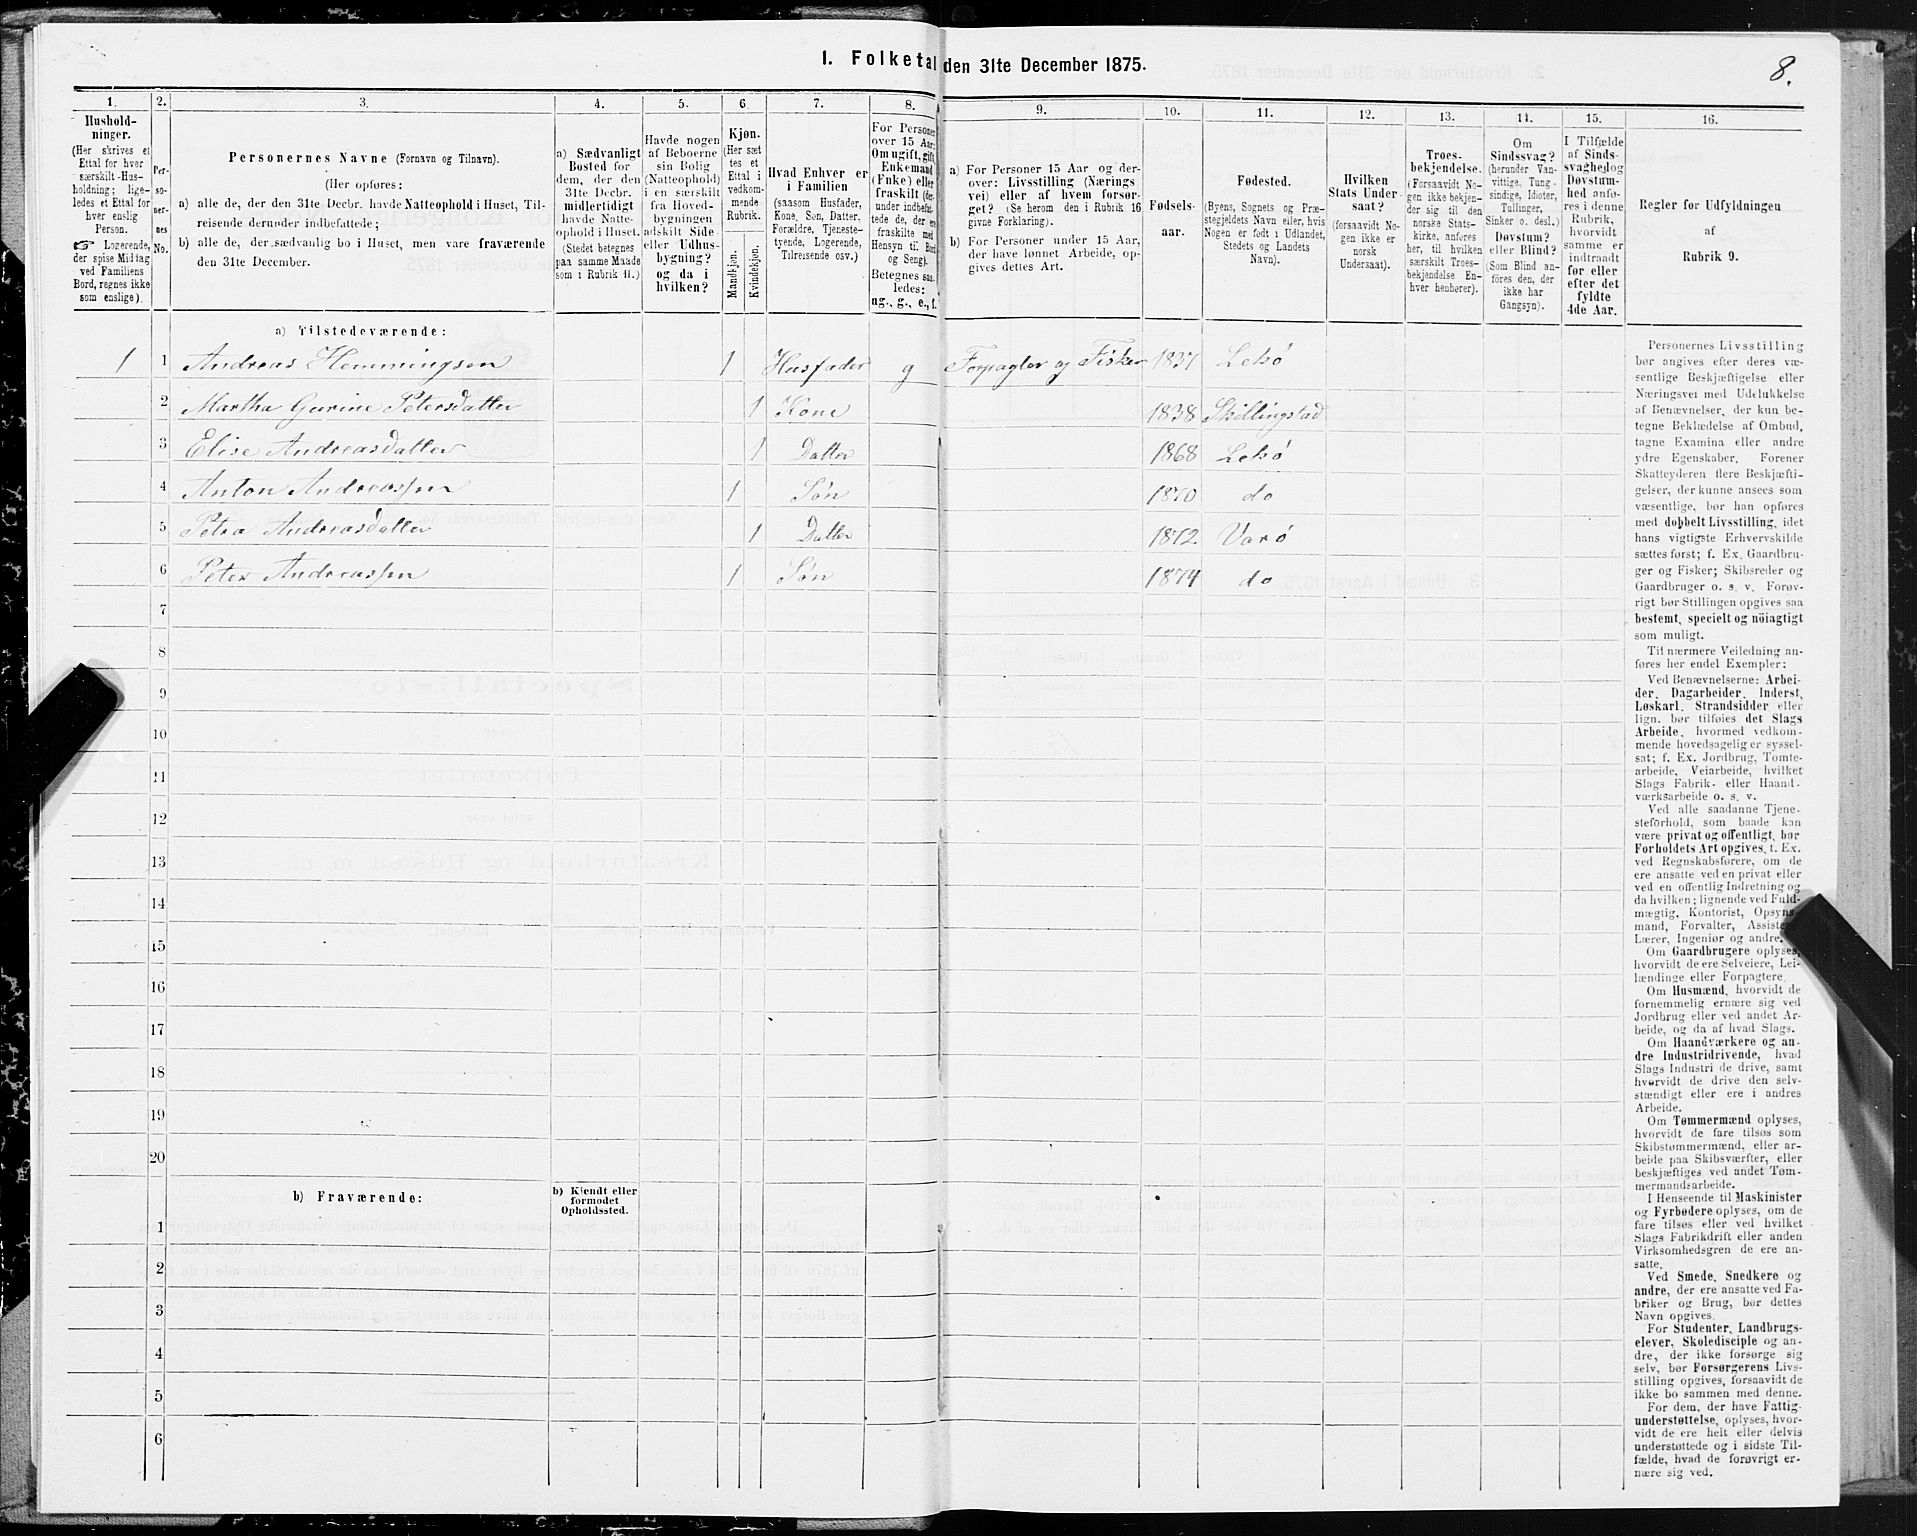 I. Folketal den 31te December 1875.
8.
1.
Hushold-
ninger.
(Her skrives et
Ettal for hver
særskilt Hus-
holdning; lige-
ledes et Ettal for
hver enslig
Person.
☞ Logerende,
der spise Middag
ved Familiens
Bord, regnes ikke
som enslige).
2.
Per-
so-
ner-
nes
No.
3.
Personernes Navne (Fornavn og Tilnavn).
(Her opføres:
a) alle de, der den 31te Decbr. havde Natteophold i Huset, Til-
reisende derunder indbefattede;
b) alle de, der sædvanlig bo i Huset, men vare fraværende
den 31te December.
4.
a) Sædvanligt
Bosted for
dem, der den
31te Decbr.
midlertidigt
havde Natte-
ophold i Huset.
(Stedet betegnes
paa samme Maade
som i Rubrik 11.)
5.
Havde nogen
af Beboerne
sin Bolig
(Natteophold)
i en særskilt
fra Hoved-
bygningen
adskilt Side
eller Udhus-
bygning?
og da i
hvilken?
6.
Kjøn.
(Her sæt
tes et
Ettal i
vedkom-
mende
Rubrik.
Mandkjøn.
Kvindekjøn.
7.
Hvad Enhver er
i Familien
(saasom Husfader,
Kone, Søn, Datter,
Forældre, Tjeneste-
tyende, Logerende,
Tilreisende osv.)
8.
For Personer
over 15 Aar:
Om ugift, gift,
Enkemand
(Enke) eller
fraskilt (der-
under indbefat-
tede de, der ere
fraskilte med
Hensyn til Bord
og Seng).
Betegnes saa-
ledes:
ug., g., e., f.
9.
a) For Personer 15 Aar og der-
over: Livsstilling (Nærings
vei) eller af hvem forsør-
get? (Se herom den i Rubrik 16
givne Forklaring).
b) For Personer under 15 Aar,
der have lønnet Arbeide, op-
gives dettes Art.
10.
Fødsels-
aar.
11.
Fødested.
(Byens, Sognets og Præ-
stegjeldets Navn eller, hvis
Nogen er født i Udlandet,
Stedets og Landets
Navn).
12.
Hvilken
Stats Under-
saat?
(forsaavidt No-
gen ikke er
norsk
Undersaat).
13.
Troes-
bekjendelse.
(Forsaavidt No-
gen ikke bekjen-
der sig til den
norske Stats-
kirke, anføres
her, til hvilken
særskilt Troes-
bekjendelse En-
hver henhører).
14.
Om
Sindssvag?
(herunder Van-
vittige, Tung-
sindige, Idioter,
Tullinger,
Sinker o. desl.)
Døvstum?
eller Blind?
(Som Blind an-
føres den, der
ikke har
Gangsyn).
15.
I Tilfælde
af Sinds-
svaghed og
Døvstum-
hed anfø-
res i denne
Rubrik,
hvorvidt
samme er
indtraadt
før eller
efter det
fyldte
4de Aar.
16.
Regler for Udfyldningen
af
Rubrik 9.
a) Tilstedeværende:
1 1 Andreas Hemmingsen 1 Husfader g Forpagter og Fisker 1837 Lekø
2 Martha Gurine Petersdatter 1 Kone 1838 Skillingstad
3 Elise Andreasdatter 1 Datter 1868 Lekø
4 Anton Andreassen 1 Søn 1870 do
5 Petra Andreasdatter 1 Datter 1872 Varø
6 Peter Andreassen 1 Søn 1874 do
7
8
9
10
11
12
13
14
15
16
17
18
19
20
b) Fraværende:
b) Kjendt eller
formodet
Opholdssted.
1
2
3
4
5
6
Personernes Livsstilling
bør angives efter deres væ-
sentlige Beskjæftigelse eller
Næringsvei med Udelukkelse
af Benævnelser, der kun be-
tegne Beklædelse af Ombud,
tagne Examina eller andre
ydre Egenskaber. Forener
Skatteyderen flere Beskjæfti-
gelser, der kunne ansees som
væsentlige, bør han opføres
med dobbelt Livsstilling, idet
hans vigtigste Erhvervskilde
sættes først; f. Ex. Gaardbru-
ger og Fisker; Skibsreder og
Gaardbruger o. s. v. Forøv-
rigt bør Stillingen opgives saa
bestemt, specielt og nöiagtigt
som muligt.
Til nærmere Veiledning an-
føres her endel Exempler:
Ved Benævnelserne: Arbei-
der, Dagarbeider, Inderst,
Løskarl, Strandsidder eller
lign. bør tilføies det Slags
Arbeide, hvormed vedkom-
mende hovedsagelig er syssel-
sat; f. Ex. Jordbrug, Tomte-
arbeide, Veiarbeide, hvilket
Slags Fabrik- eller Haand-
værksarbeide o. s. v.
Ved alle saadanne Tjene-
steforhold, som baade kan
være privat og offentligt, bør
Forholdets Art opgives, t. Ex.
ved Regnskabsførere, om de
ere ansatte ved en privat eller
ved en offentlig Indretning og
da hvilken; lignende ved Fuld-
mægtig, Kontorist, Opsyns-
mand, Forvalter, Assistent,
Lærer, Ingeniør og andre.
Om Gaardbrugere oplyses,
hvorvidt de ere Selveiere, Lei-
lændinge eller Forpagtere.
Om Husmænd, hvorvidt de
fornemmelig ernære sig ved
Jordbrug eller ved andet Ar-
beide, og da af hvad Slags.
Om Haandværkere og an-
dre Industridrivende, hvad
Slags Industri de drive, samt
hvorvidt de drive den selv-
stændigt eller ere i andres
Arbeide.
Om Tømmermænd oplyses,
hvorvidt de fare tilsøs som
Skibstømmermænd, eller ar-
beide paa Skibsværfter, eller
beskjæftiges ved andet Tøm-
mermandsarbeide.
I Henseende til Maskinister
og Fyrbødere oplyses, om de
fare tilsøs eller ved hvilket
Slags Fabrikdrift eller anden
Virksomhedsgren de ere an-
satte.
Ved Smede, Snedkere og
andre, der ere ansatte ved Fa-
briker og Brug, bør dettes
Navn opgives.
For Studenter, Landbrugs-
elever, Skoledisciple og an-
dre, der ikke forsørge sig
selv, bør Forsørgerens Livs-
stilling opgives, forsaavidt de
ikke bo sammen med denne.
For dem, der have Fattig-
understøttelse, oplyses, hvor-
vidt de ere helt eller delvis
understøttede og i sidste Til-
fælde, hvad de forøvrigt er-
nære sig ved.